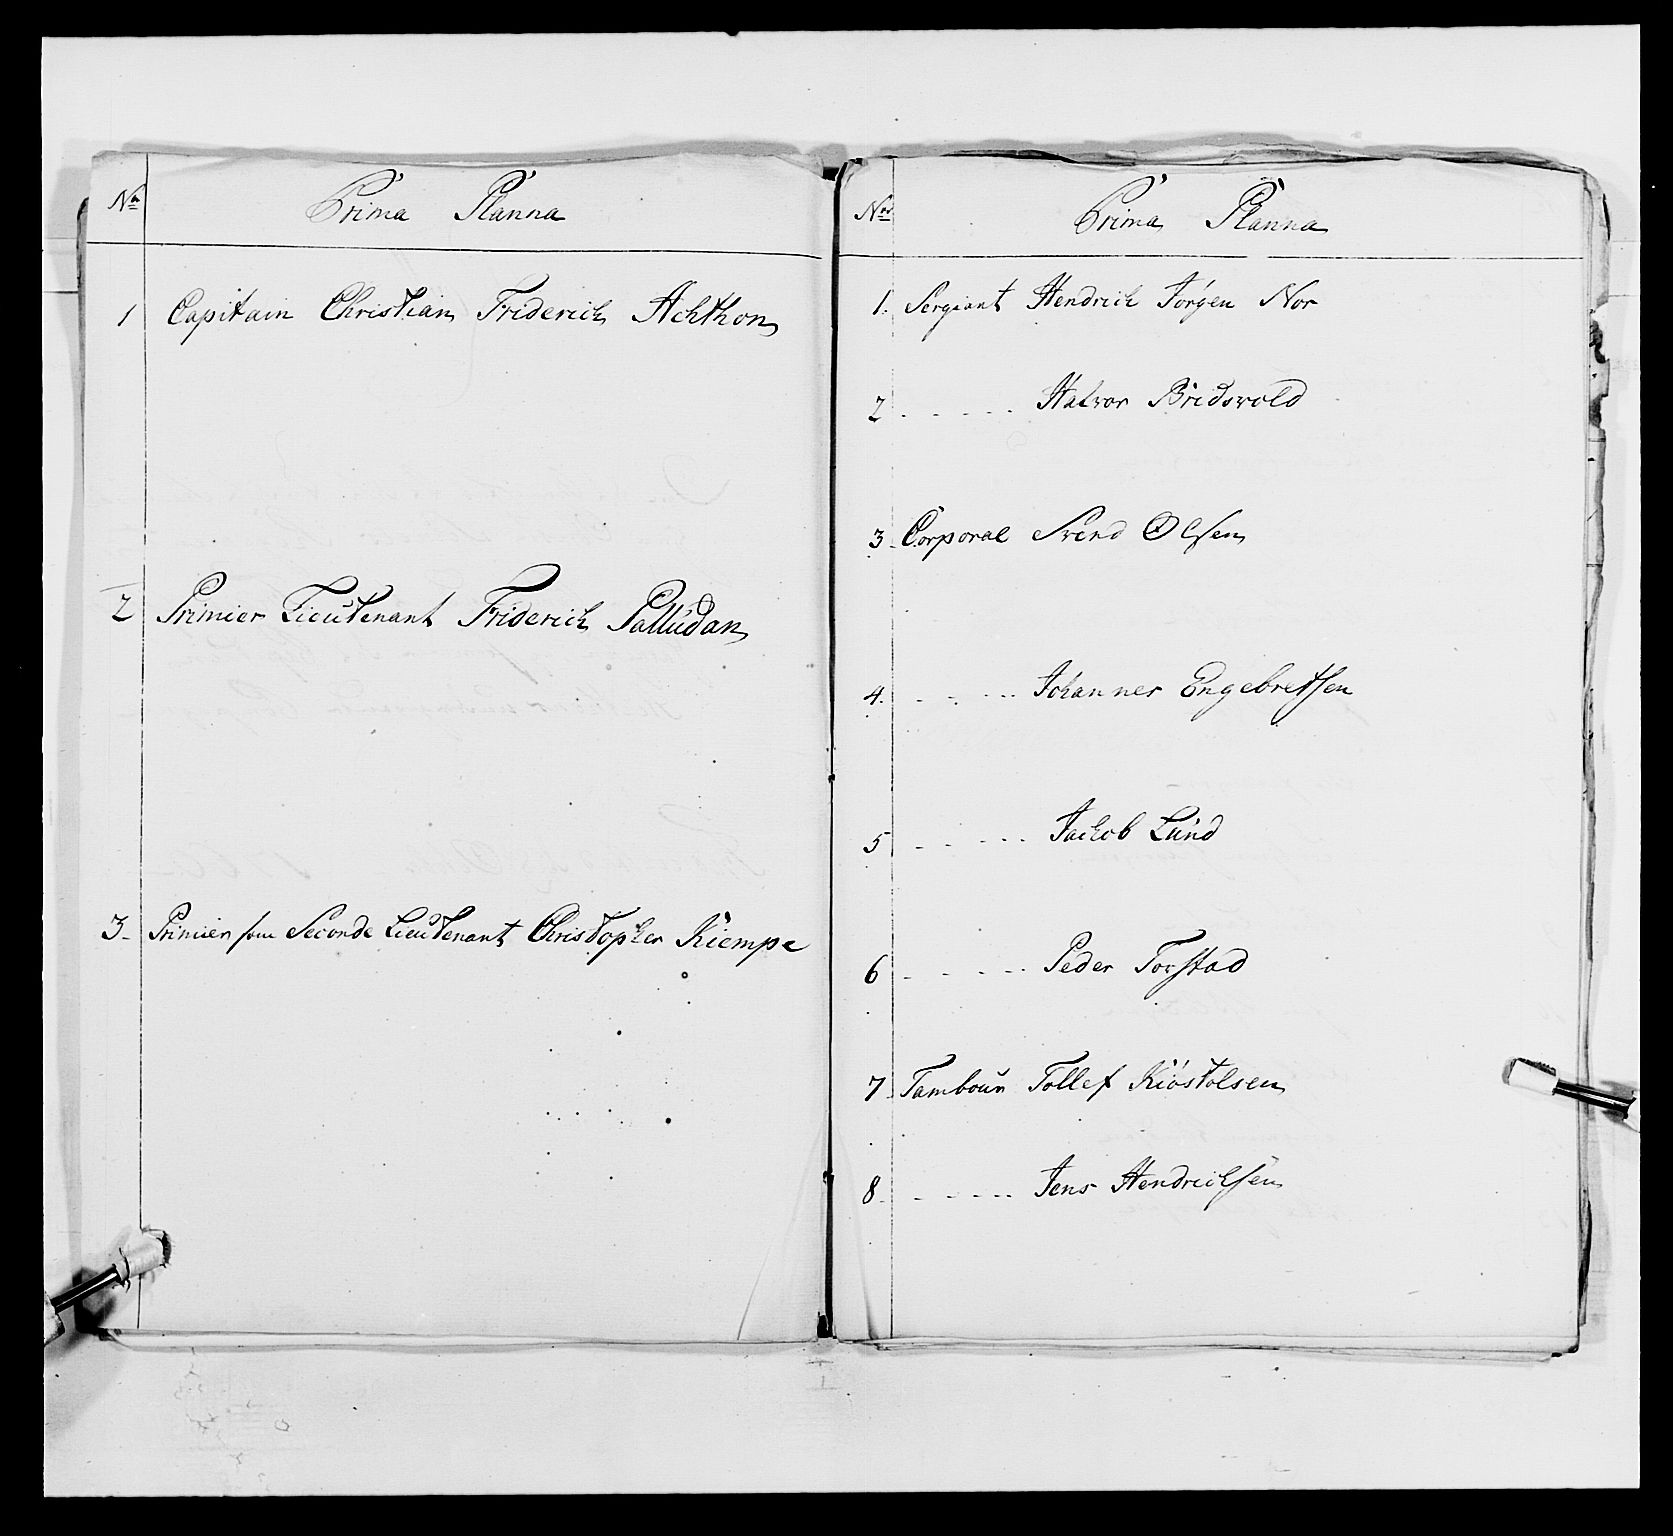 No Prima Planna
1 Capitain Christian Friderich Achthon
2 Primier Lieutenant Friderich Palludan
3. Primier som Seconde Lieutenant Christopher Kiempe
No Prima Planna
1. Sergiant Hendrich Jörgen Nor
2 - - - - - Halvor Bridsvold
3. Corporal Svend Olsen
4. - - - - - Johannes Engebretsen
5 - - - - - Jachob Lund
6 - - - - - Peder Torstad
7. Tambour Tollef Kiöstolsen
8. - - - - - Jens Hendrichsen